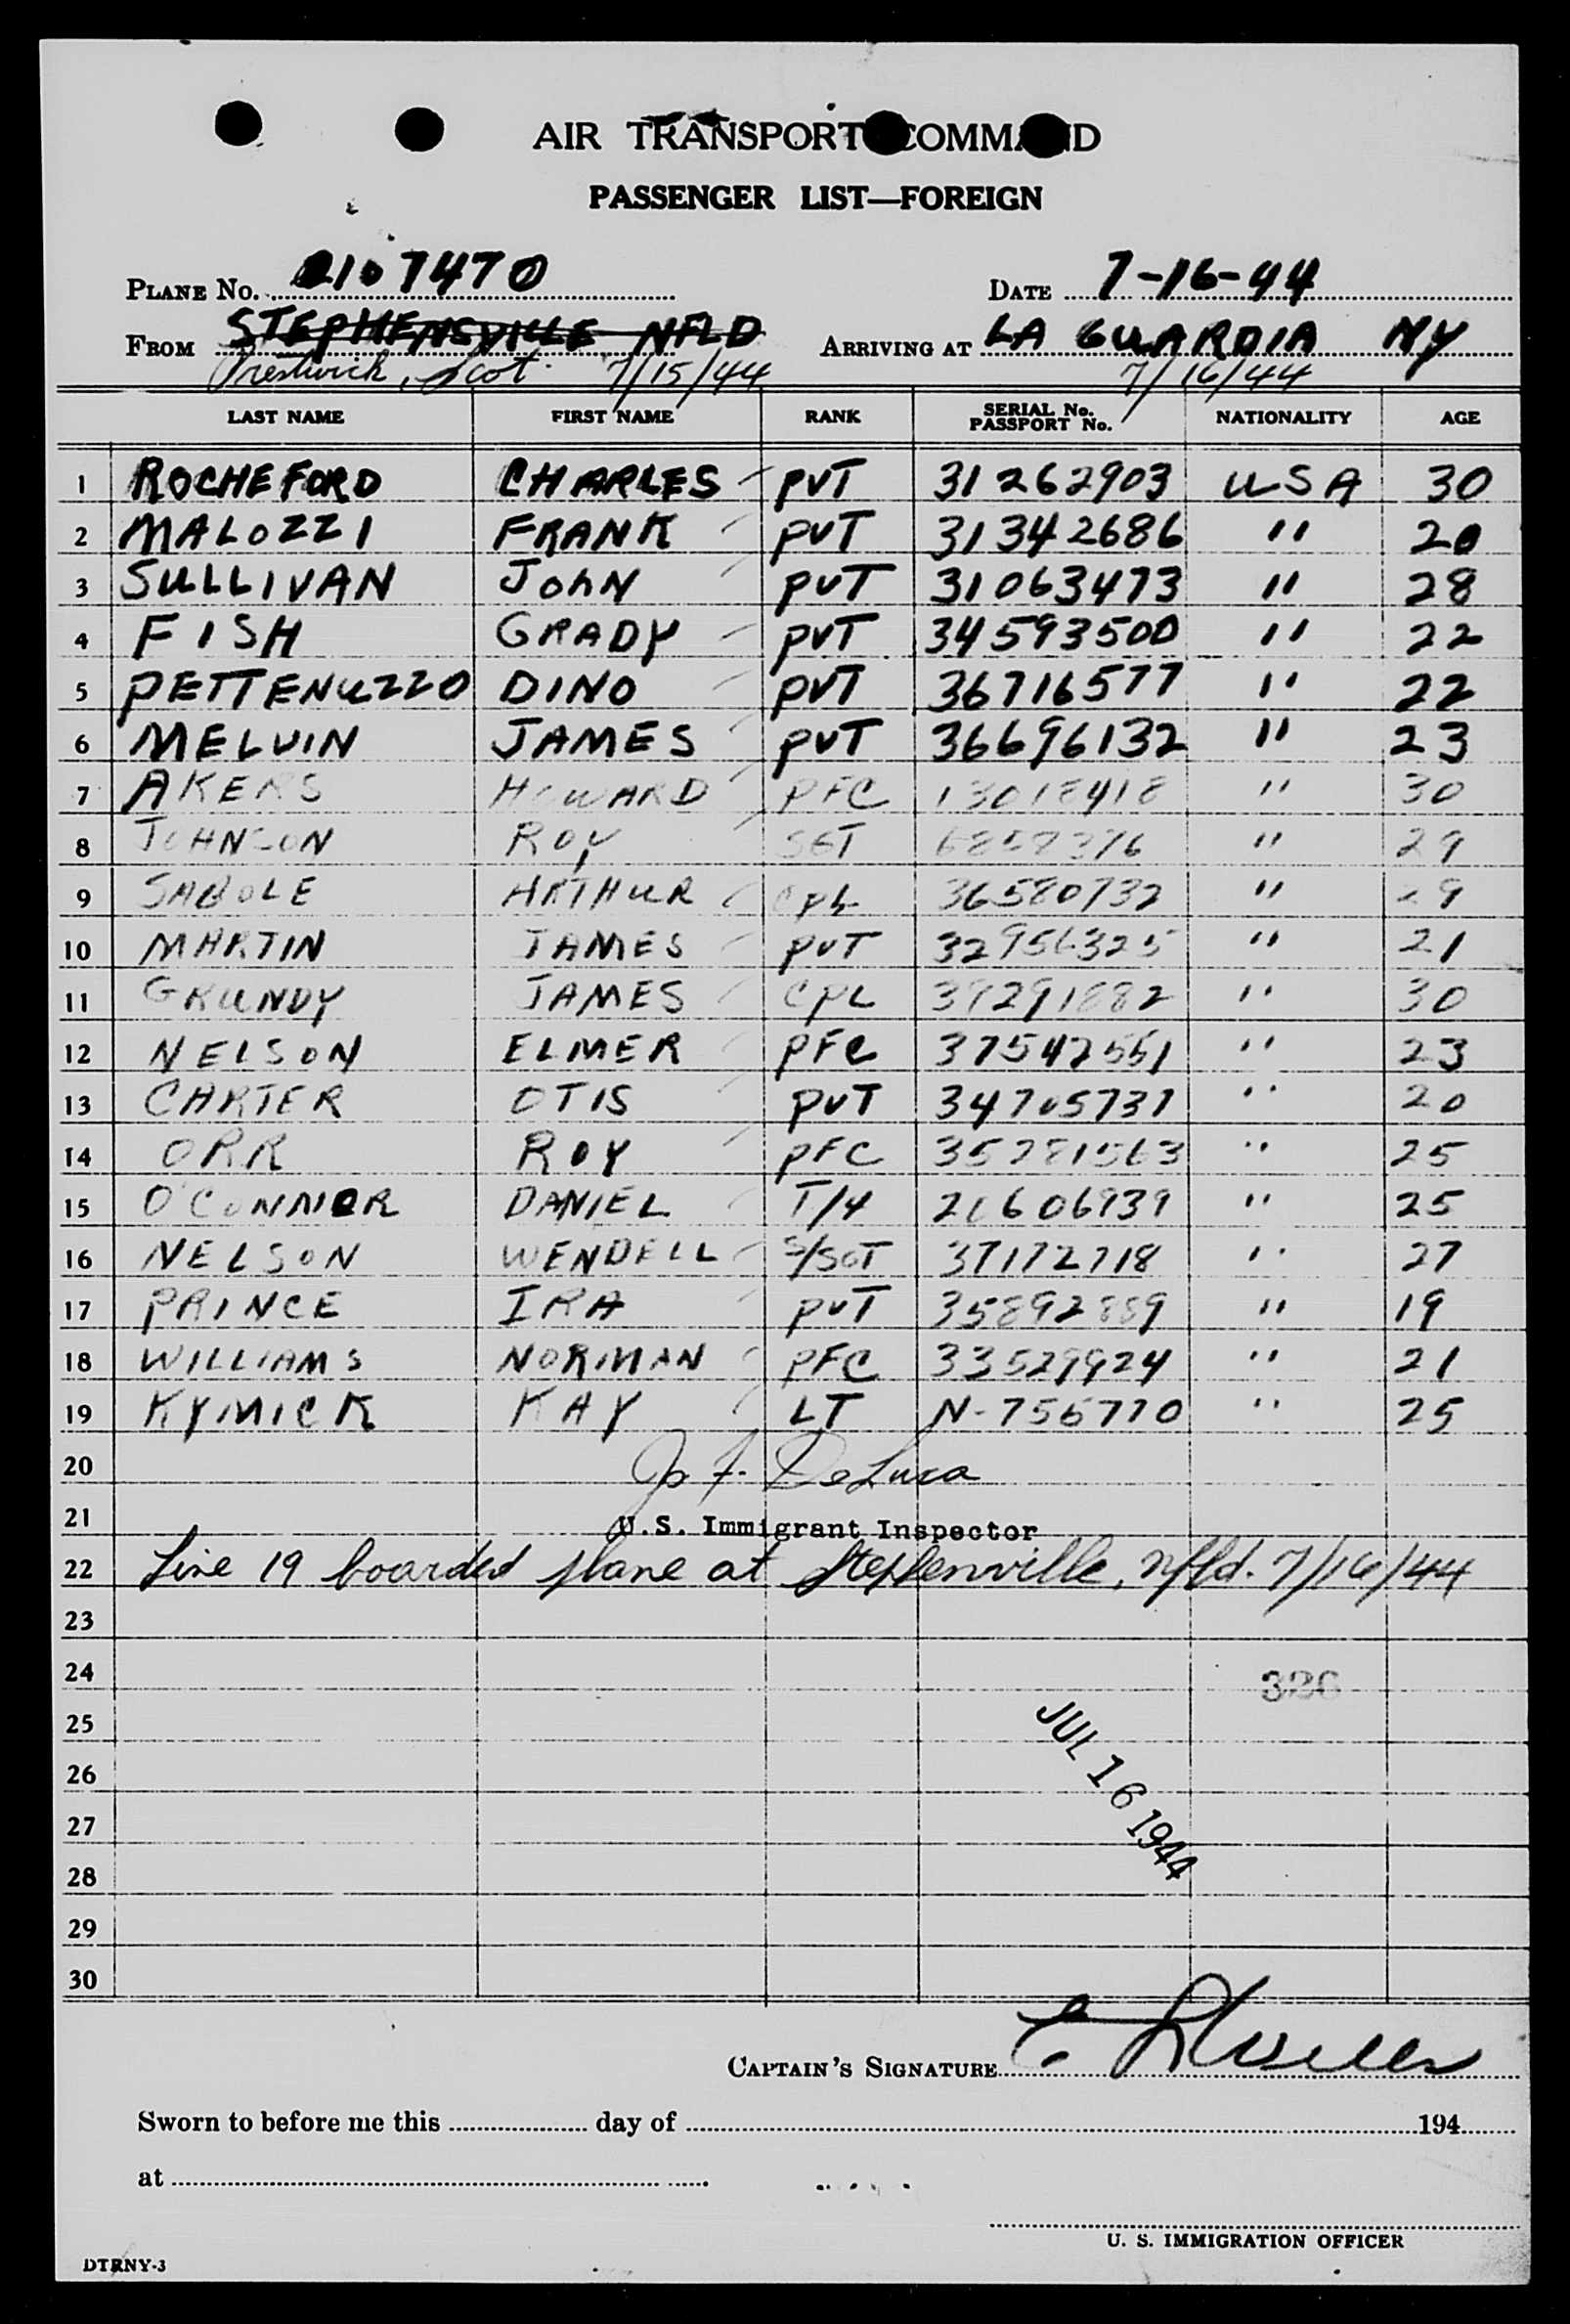 AIR TRANSPORT COMMAND
PASSENGER LIST—FOREIGN
PLANE No. 2107470 DATE 7-16-44
FROM STEPHENSVILLE NFLD ARRIVING AT LA GUARDIA NY
Prestwick, Scot. 7/15/44 7/16/44
LAST NAME FIRST NAME RANK SERIAL No. PASSPORT No. NATIONALITY AGE
1 ROCHEFORD CHARLES PVT 31262903 USA 30
2 MALOZZI FRANK PVT 31342686 " 20
3 SULLIVAN JOHN PVT 31063473 " 28
4 FISH GRADY PVT 34593500 " 22
5 PETTENUZZO DINO PVT 36716577 " 22
6 MELVIN JAMES PVT 36696132 " 23
7 AKERS HOWARD PFC 13018418 " 30
8 JOHNSON ROY SGT " 29
9 SABOLE ARTHUR CPL 36580732 " 29
10 MARTIN JAMES PVT 32956325 " 21
11 GRUNDY JAMES CPL " 30
12 NELSON ELMER PFC 37542551 " 23
13 CARTER OTIS PVT 34705737 " 20
14 ORR ROY PFC 35281563 " 25
15 O'CONNOR DANIEL T/4 20606939 " 25
16 NELSON WENDELL S/SGT 37172718 " 27
17 PRINCE IRA PVT 35892889 " 19
18 WILLIAMS NORMAN PFC 33529924 " 21
19 KYMICK KAY LT N-756770 " 25
20 Jo F. DeLuca
21 U.S. Immigrant Inspector
22 Line 19 boarded plane at Stephenville, Nfld. 7/16/44
23
24 326
25
26 JUL 16 1944
27
28
29
30
CAPTAIN'S SIGNATURE
Sworn to before me this day of 194
at
U. S. IMMIGRATION OFFICER
DTRNY-3